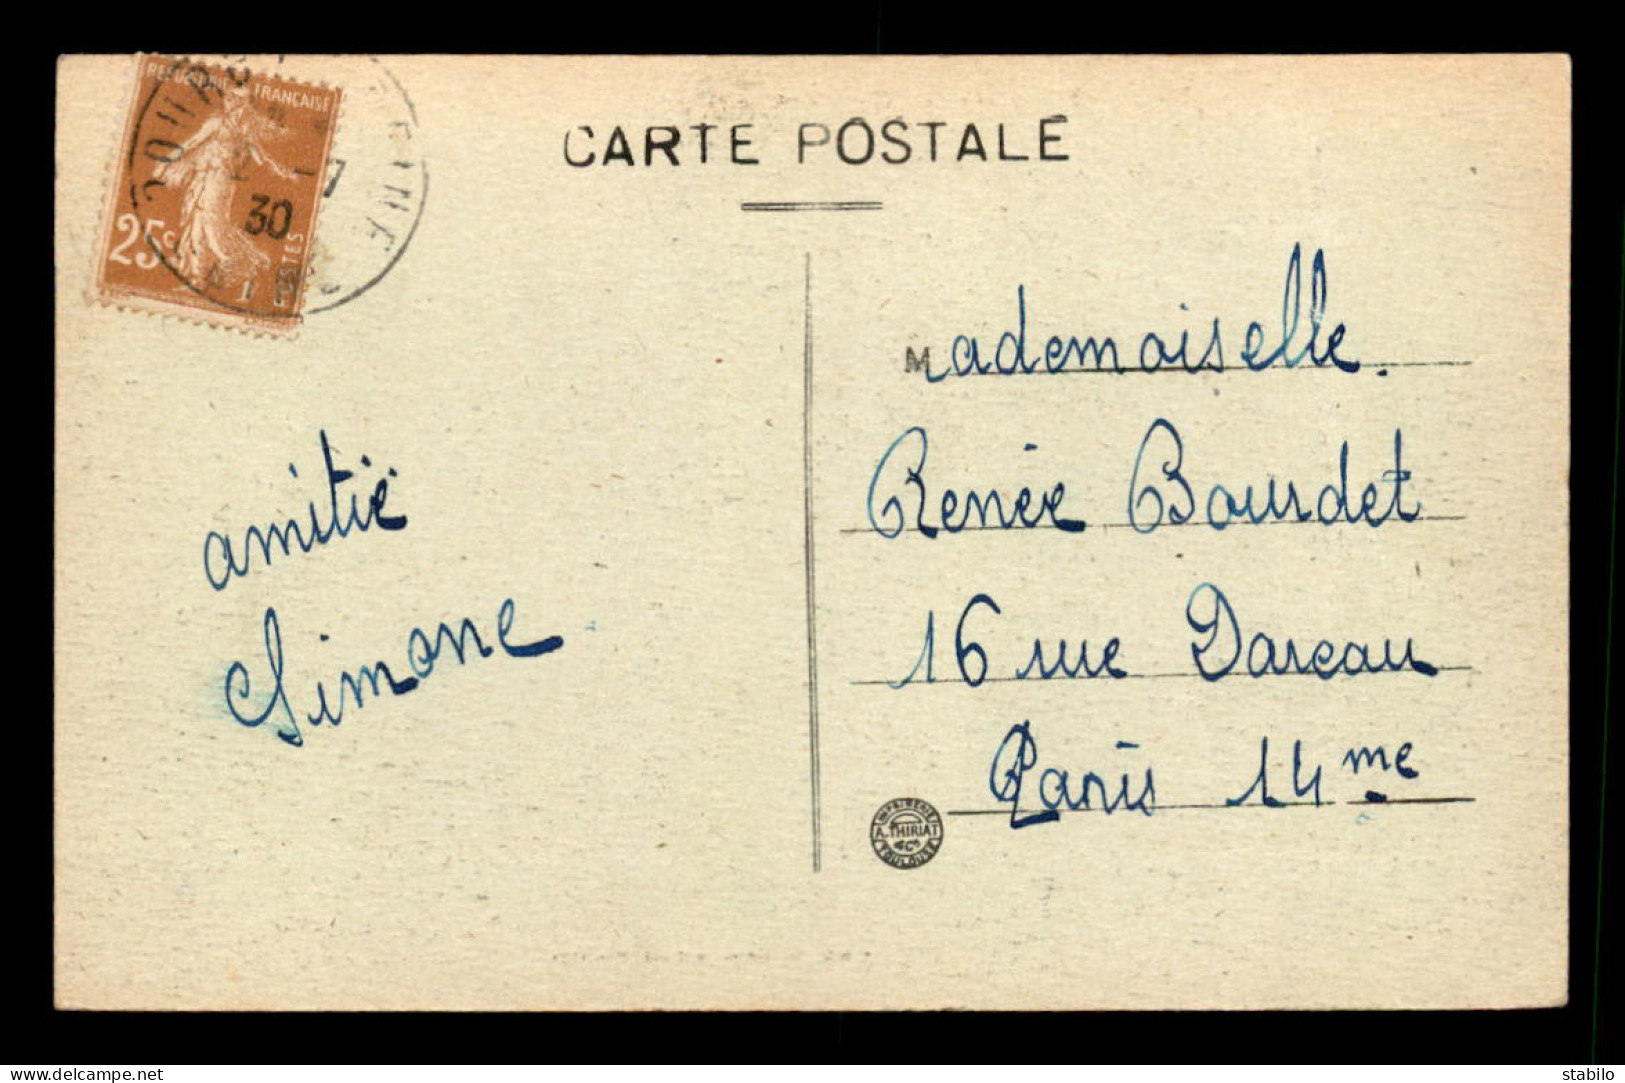 CARTE POSTALE
REPUBLIQUE FRANÇAISE
25c
POSTES
-7
30
Mademoiselle.
Renée Bourdet
16 rue Dareau
Paris 14me
amitié
Simone
IMPRIMERIE
A. THIRIAT
& Cie
TOULOUSE
www.delcampe.net
stabilo